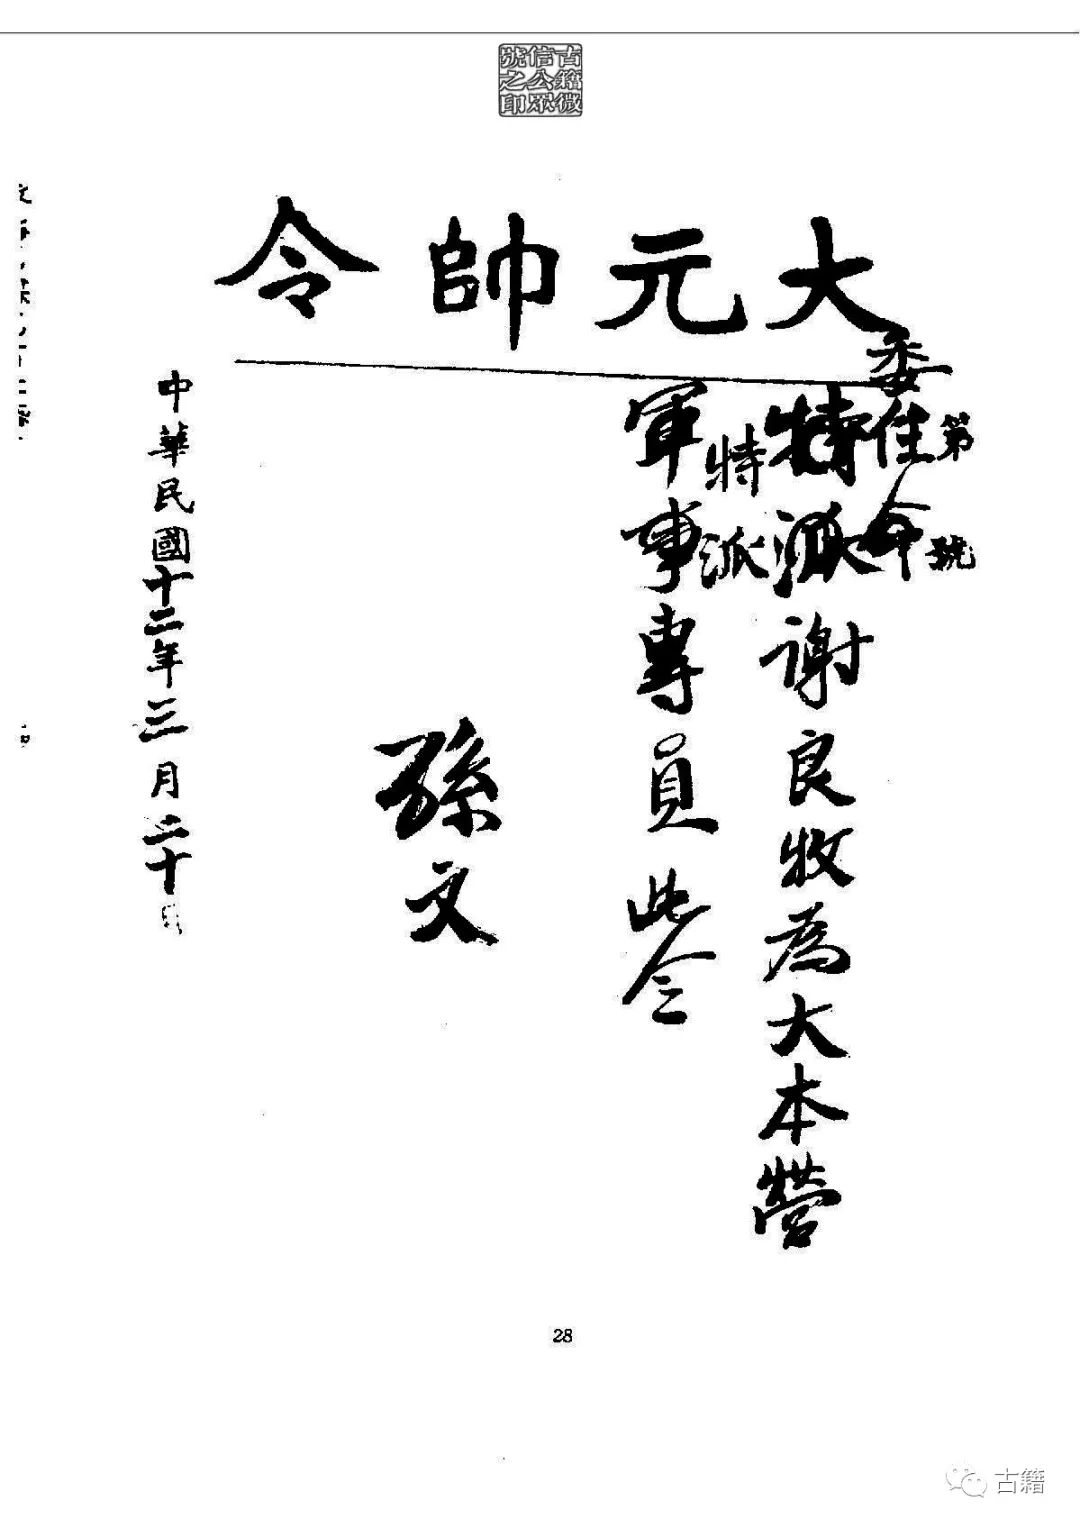 古籍微
信公眾
號之印
大元帥令
第 號
委任令
特派謝良牧為大本營
特派
軍事專員此令
孫文
中華民國十二年三月二十日
28
古籍